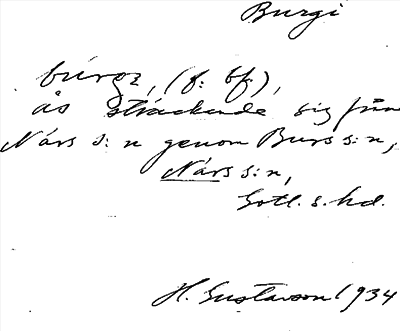 Burgi
búrgɩ, (f. bf),
ås sträckande sig från
Närs s:n genom Burs s:n,
Närs s:n,
Gotl. s. hd.
H. Gustavson 1934